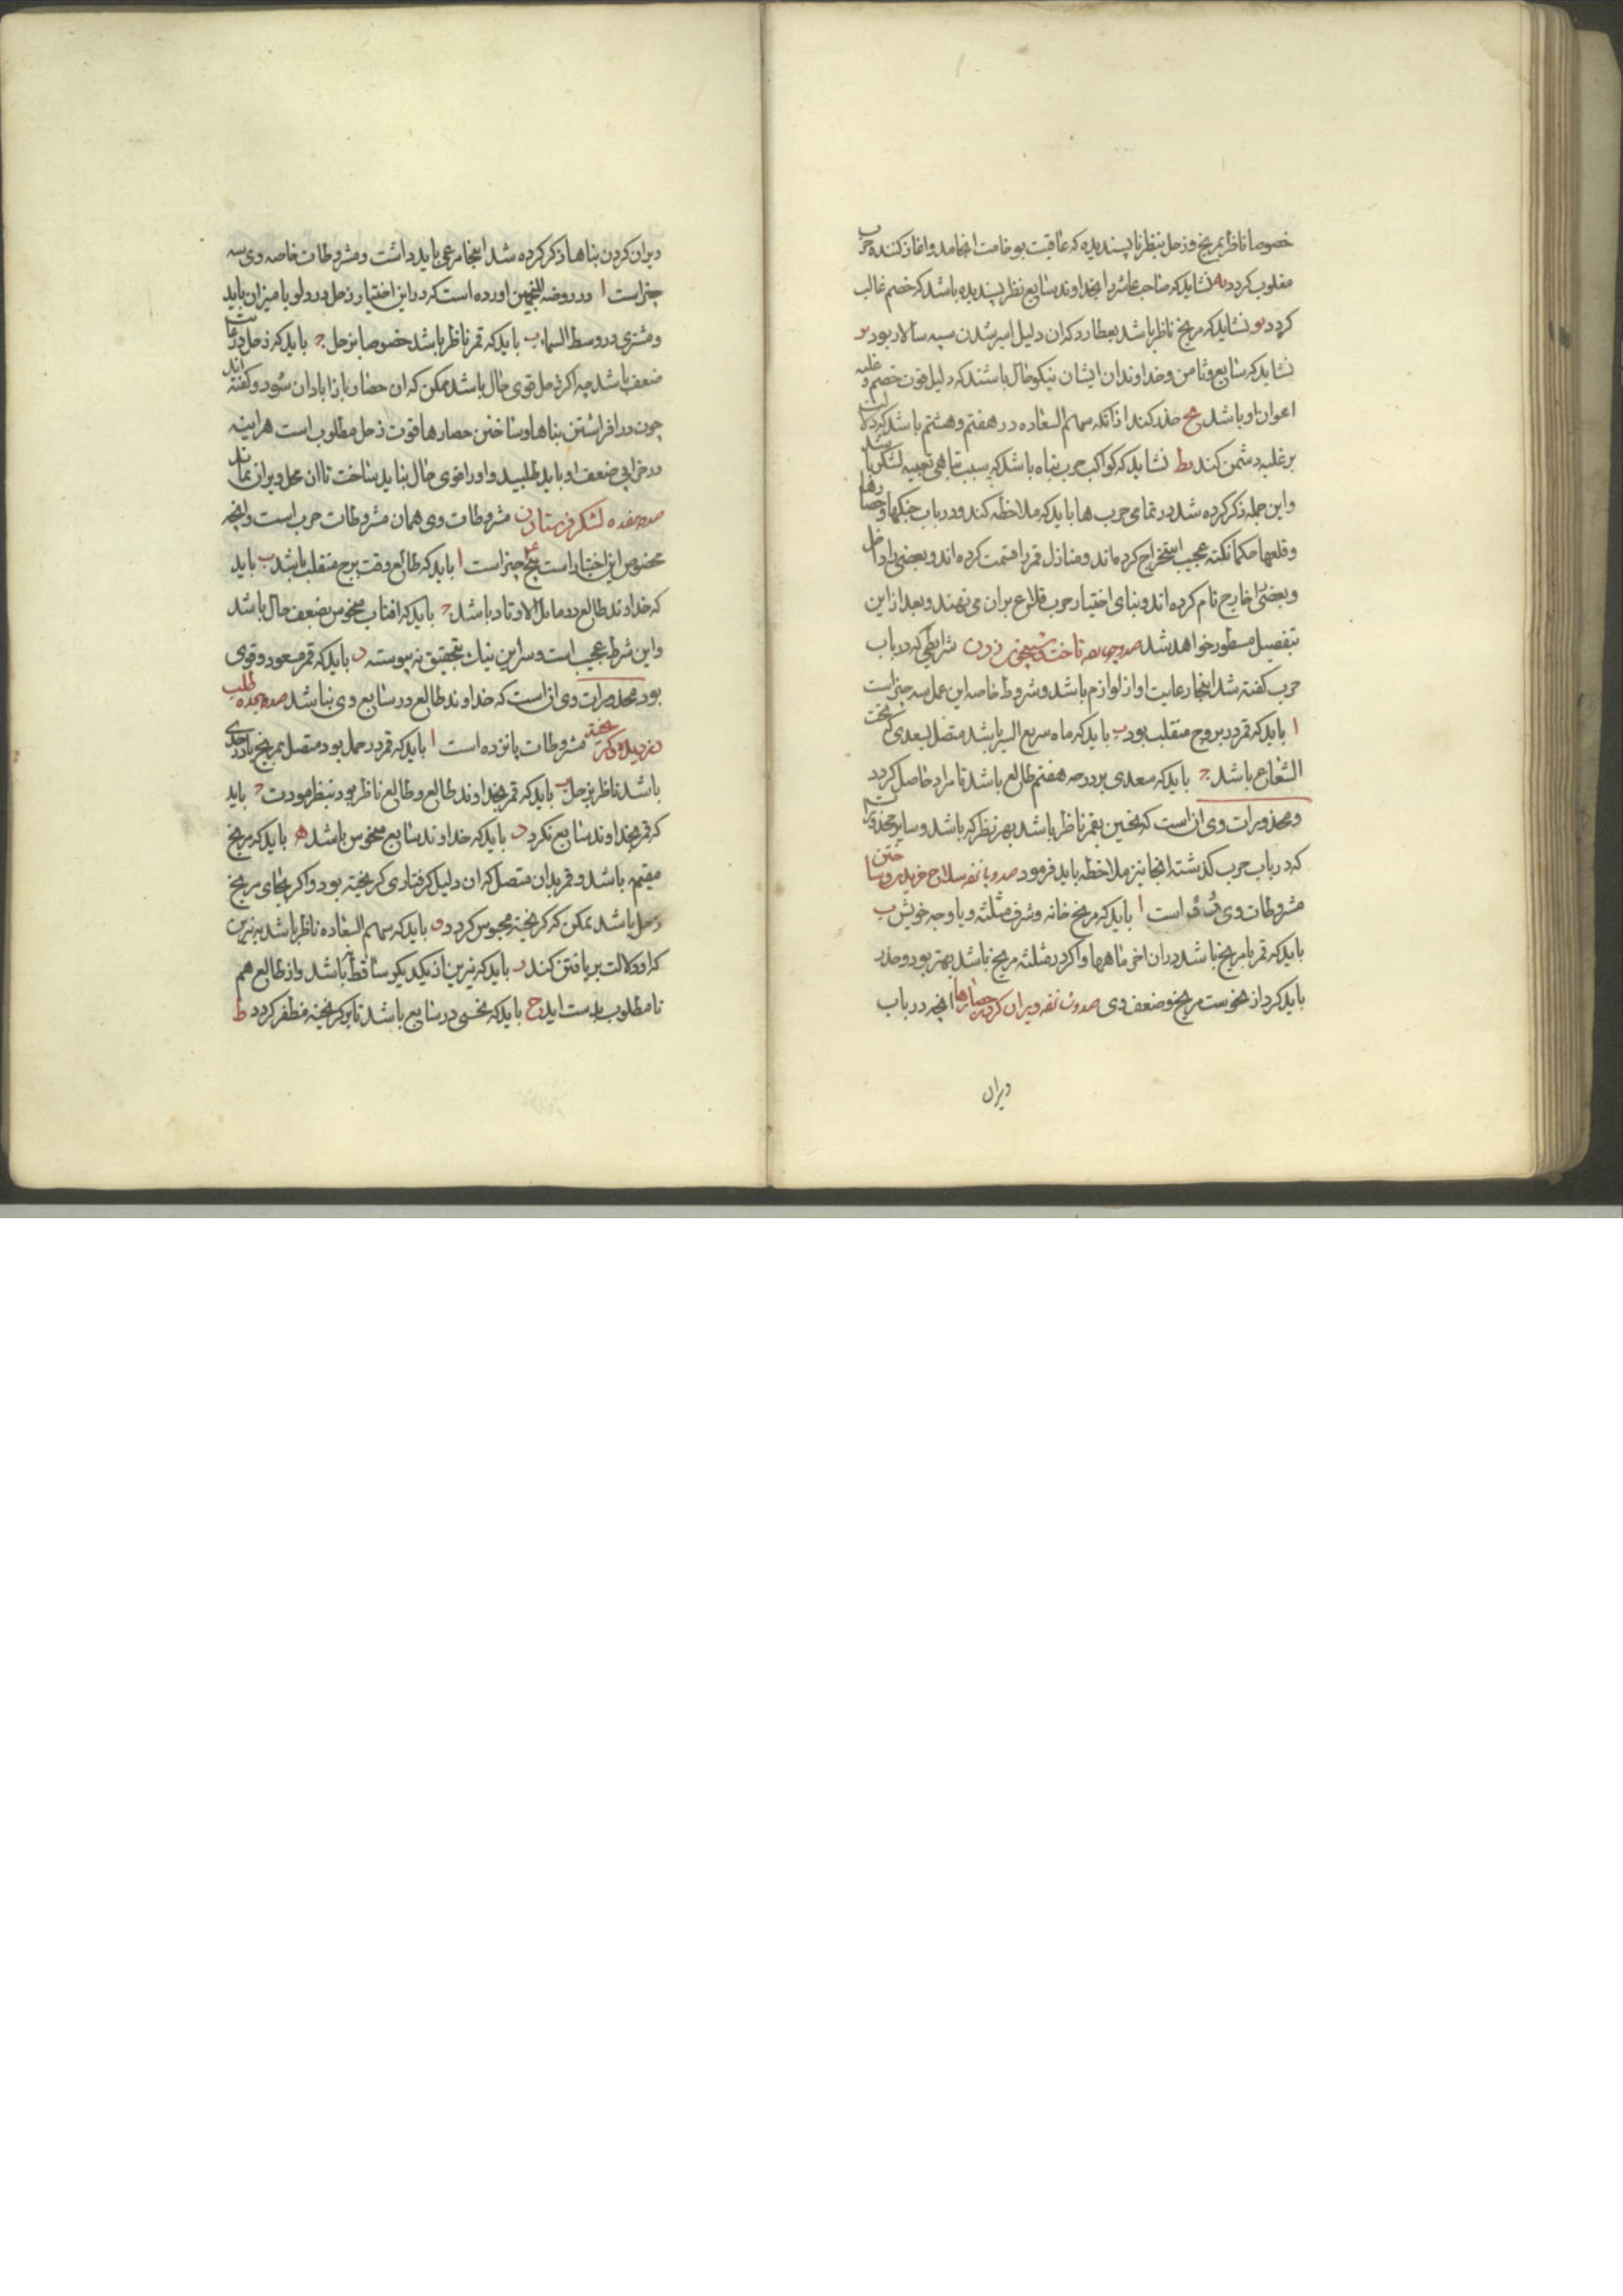 خصوصا ناظر بمریخ و زحل بنظر ناپسندیده که عاقبت بوخامت انجامد و اغاز کننده حرب
مغلوب کردد یه نشاید که صاحب عاشر را بخداوند سابع نظر پسندیده باشد که خصم غالب
کردد یو نشاید که مریخ ناظر باشد بعطارد که ان دلیل اسیر شدن سپه سالار بود یز
نشاید که سابع و ثامن و خداوندان ایشان نیکو حال باشند که دلیل قوت خصم و غلبه
اعوان او باشد یح حذر کند از انکه سهم السعاده در هفتم و هشتم باشد که دلالت
بر غلبه دشمن کند یط نشاید که کواکب حرب تباه باشد که سبب تباهی تعبیه لشکر باشد
و این جمله ذکر کرده شد در تمامی حرب ها باید که ملاحظه کند و در باب جنکها و حصارها
و قلعها حکما نکته عجیب استخراج کرده اند و منازل قمر را قسمت کرده اند و بعضی را داخل
و بعضی را خارج نام کرده اند و بنای اختیار حرب قلاع بران می نهند و بعد از این
بتفصیل مسطور خواهد شد تاخت و شبیخون زدن شرایطی که در باب
حرب کفته شد اینجا رعایت او از لوازم باشد و شروط خاصه این عمل سه چیز است
ا باید که قمر در بروج منقلب بود ب باید که ماه سریع السیر باشد متصل بسعدی که تحت
الشعاع باشد ج باید که سعدی بر درجه هفتم طالع باشد تا مراد حاصل کردد
و محذورات وی ان است که نحسین بقمر ناظر باشد بهر نظر که باشد و سایر محذورات
که در باب حرب کذشته انجا نیز ملاحظه باید فرمود سلاح خریدن و ساختن
مشروطات وی دو است ا باید که مریخ خانه و شرف مثلثه و یا وجه خویش ب
باید که قمر با مریخ باشد در ان اخر ماهها و اکر در مثلثه مریخ باشد بهتر بود و حذر
باید کرد از نحوست مریخ و ضعف وی ویران کردن حصارها انچه در باب
ویران
ویران کردن بناها ذکر کرده شد اینجا مرعی باید داشت و مشروطات خاصه وی سه
چیز است ا در روضه المنجمین اورده است که در این اختیار زحل در دلو یا میزان باید
و مشتری در وسط السماء ب باید که قمر ناظر باشد خصوصا بزحل ج باید که زحل در غایت
ضعف باشد چه اکر زحل قوی حال باشد ممکن که ان حصار باز ابادان شود و کفته اند
چون در افراشتن بناها و ساختن حصارها قوت زحل مطلوب است هراینه
در خرابی ضعف او باید طلبید و او را قوی حال نباید ساخت تا ان محل ویران نماند
هفده لشکر فرستادن مشروطات وی همان مشروطات حرب است و انچه
مخصوص این اختیار است پنج چیز است ا باید که طالع وقت برج منقلب باشد ب باید
که خداوند طالع در مایل الاوتاد باشد ج باید که افتاب منحوس بضعف حال باشد
و این شرط عجیب است و سر این نیک بتحقیق نه پیوسته د باید که قمر مسعود و قوی
بود محذورات وی ان است که خداوند طالع در سابع وی نباشد هیجده طلب
دزدیده و کریخته مشروطات پانزده است ا باید که قمر در حمل بود متصل بمریخ یا در جدی
باشد ناظر بزحل ب باید که قمر بخداوند طالع و طالع ناظر بود بنظر مودت ج باید
که قمر بخداوند سابع نکرد د باید که خداوند سابع منحوس باشد ه باید که مریخ
مقیم باشد و قمر بدان متصل که ان دلیل کرفتاری کریخته بود و اکر بجای مریخ
زحل باشد ممکن که کریخته محبوس کردد و باید که سهم السعاده ناظر باشد به نیرین
که او دلالت بر یافتن کند ز باید که نیرین از یکدیکر ساقط نباشد و از طالع هم
تا مطلوب بدست اید ح باید که نحسی در سابع باشد تا بر کریخته مظفر کردد ط